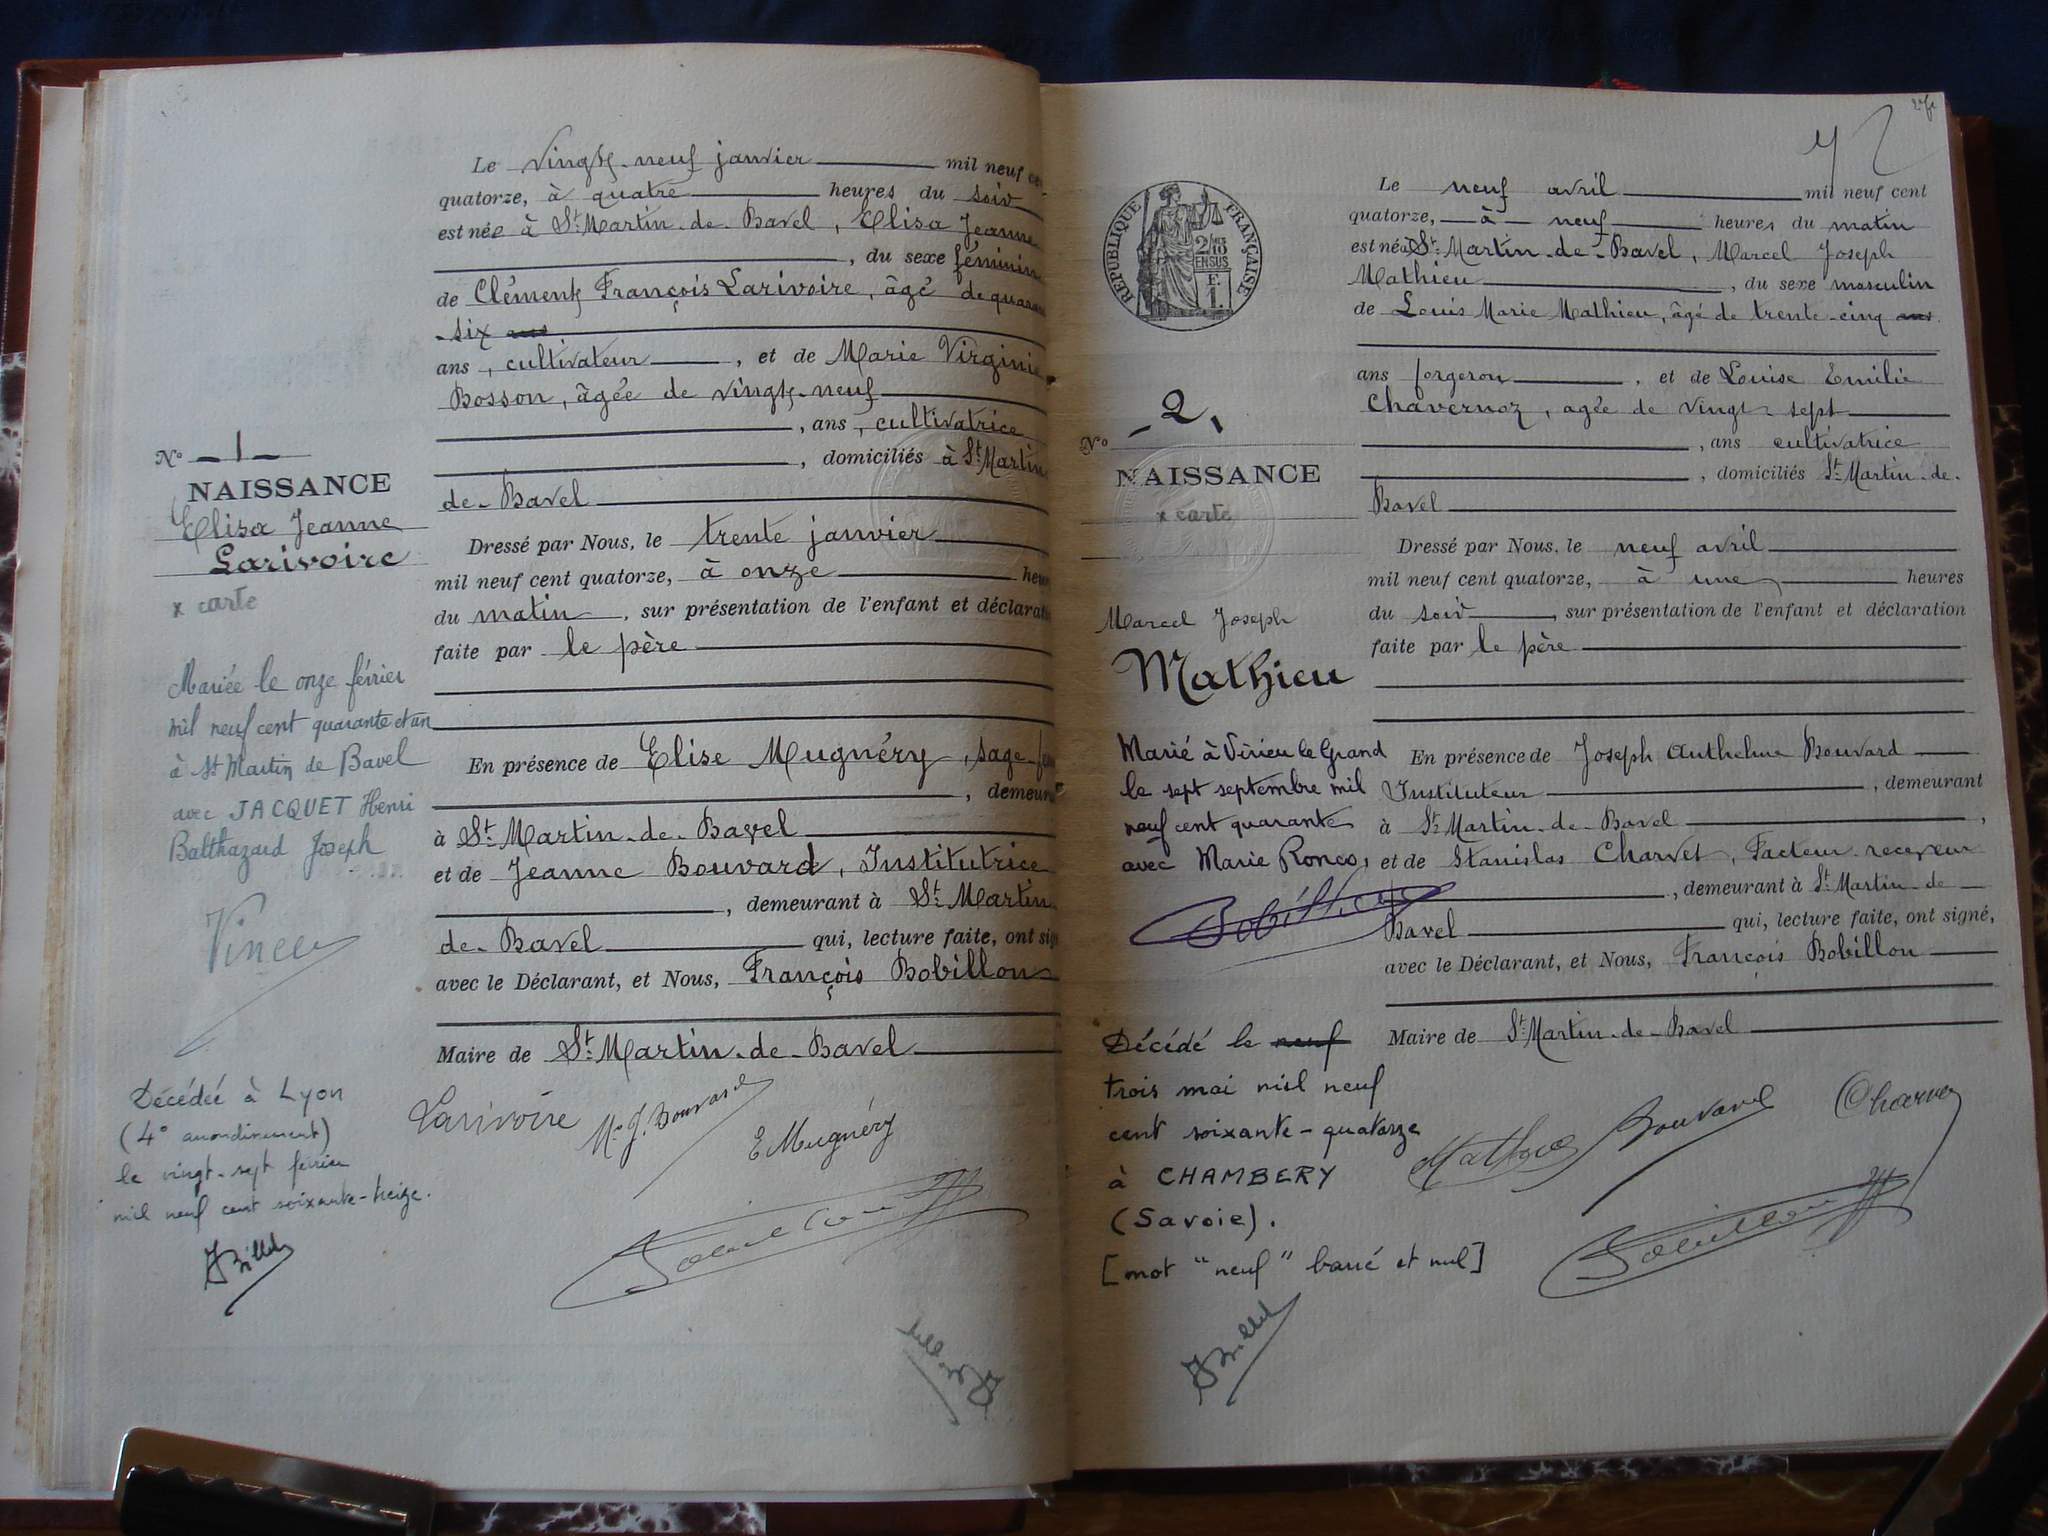 Le vingt-neuf janvier mil neuf
quatorze, à quatre heures du soir
est née à St Martin-de-Bavel, Elisa Jeanne
, du sexe féminin
de Clément François Larivoire, âgé de
-six ans
ans, cultivateur, et de Marie Virginie
Bosson, âgée de vingt-neuf
, ans, cultivatrice
, domiciliés à St Martin
de-Bavel
Dressé par Nous, le trente janvier
mil neuf cent quatorze, à onze
du matin, sur présentation de l'enfant et
faite par le père
En présence de Elise Mugnéry, sage-
, demeurant
à St Martin-de-Bavel
et de Jeanne Bouvard, Institutrice
, demeurant à St Martin
de-Bavel qui, lecture faite, ont
avec le Déclarant, et Nous, François Bobillon
Maire de St Martin-de-Bavel
Larivoire
M. J. Bouvard
E Mugnéry
N° -1-
NAISSANCE
Elisa Jeanne
Larivoire
x carte
Mariée le onze février
mil neuf cent quarante et un
à St Martin de Bavel
avec JACQUET Henri
Balthazard Joseph
Décédée à Lyon
(4° arrondissement)
le vingt-sept février
mil neuf cent soixante-treize.
RÉPUBLIQUE FRANÇAISE
2/10
EN SUS
Le neuf avril mil neuf cent
quatorze, à neuf heures du matin
est né à St Martin-de-Bavel, Marcel Joseph
Mathieu, du sexe masculin
de Louis Marie Mathieu, âgé de trente-cinq ans
ans forgeron, et de Louise Emilie
Chavernoz, agée de vingt-sept
, ans cultivatrice
, domiciliés St Martin-de-
Bavel
Dressé par Nous, le neuf avril
mil neuf cent quatorze, à une heures
du soir, sur présentation de l'enfant et déclaration
faite par le père
En présence de Joseph Anthelme Bouvard
Instituteur, demeurant
à St Martin-de-Bavel,
et de Stanislas Charvet, Facteur-receveur
, demeurant à St Martin-de-
Bavel qui, lecture faite, ont signé,
avec le Déclarant, et Nous, François Bobillon
Maire de St Martin-de-Bavel
Bouvard
N° -2.
NAISSANCE
x carte
Marcel Joseph
Mathieu
Marié à Virieu le Grand
le sept septembre mil
neuf cent quarante
avec Marie Ronco,
Décédé le neuf
trois mai mil neuf
cent soixante-quatorze
à CHAMBERY
(Savoie).
[mot "neuf" barré et nul]